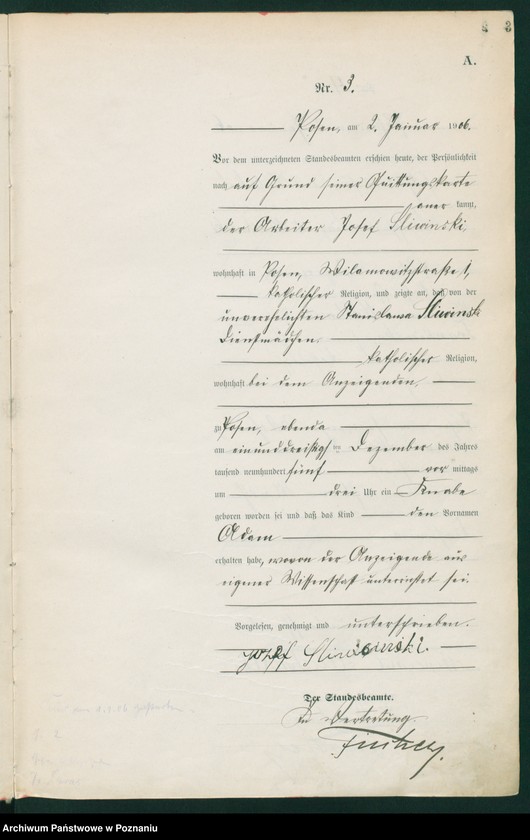 A.
Nr. 3.
Posen, am 2. Januar 1906.
Vor dem unterzeichneten Standesbeamten erschien heute, der Persönlichkeit
nach auf Grund seiner Quittungskarte
aner kannt,
der Arbeiter Josef Sliwinski,
wohnhaft in Posen, Wilamowitzstraße 1,
katholischer Religion, und zeigte an, daß von der
unverehelichten Stanislawa Sliwinski
Dienstmädchen.
katholischer Religion,
wohnhaft bei dem Anzeigenden,
zu Posen, ebenda
am einunddreißigsten Dezember des Jahres
tausend neunhundert fünf vor mittags
um drei Uhr ein Knabe
geboren worden sei und daß das Kind den Vornamen
Adam
erhalten habe, wovon der Anzeigende aus
eigener Wissenschaft unterrichtet sei.
Vorgelesen, genehmigt und unterschrieben.
Der Standesbeamte.
In Vertretung
Archiwum Państwowe w Poznaniu